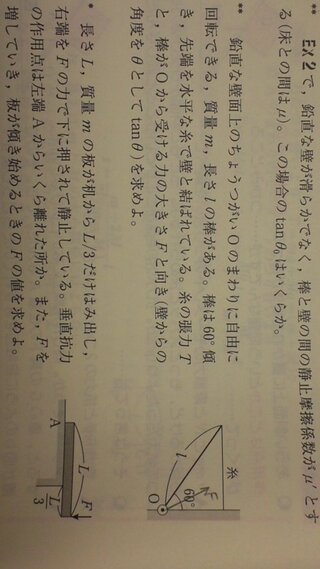 ** Ex 2 で，鉛直な壁が滑らかでなく，棒と壁の間の静止摩擦係数がμ'とす
る(床との間はμ)。この場合の tanθ₀はいくらか。
** 鉛直な壁面上のちょうつがい O のまわりに自由に
回転できる，質量 m，長さ l の棒がある。棒は 60°傾
き，先端を水平な糸で壁と結ばれている。糸の張力 T
と，棒が O から受ける力の大きさ F と向き(壁からの
角度をθとして tanθ)を求めよ。
糸
l
60°
F
O
* 長さ L，質量 m の板が机から L/3 だけはみ出し，
右端を F の力で下に押されて静止している。垂直抗力
の作用点は左端 A からいくら離れた所か。また，F を
増していき，板が傾き始めるときの F の値を求めよ。
L
F
A
L/3